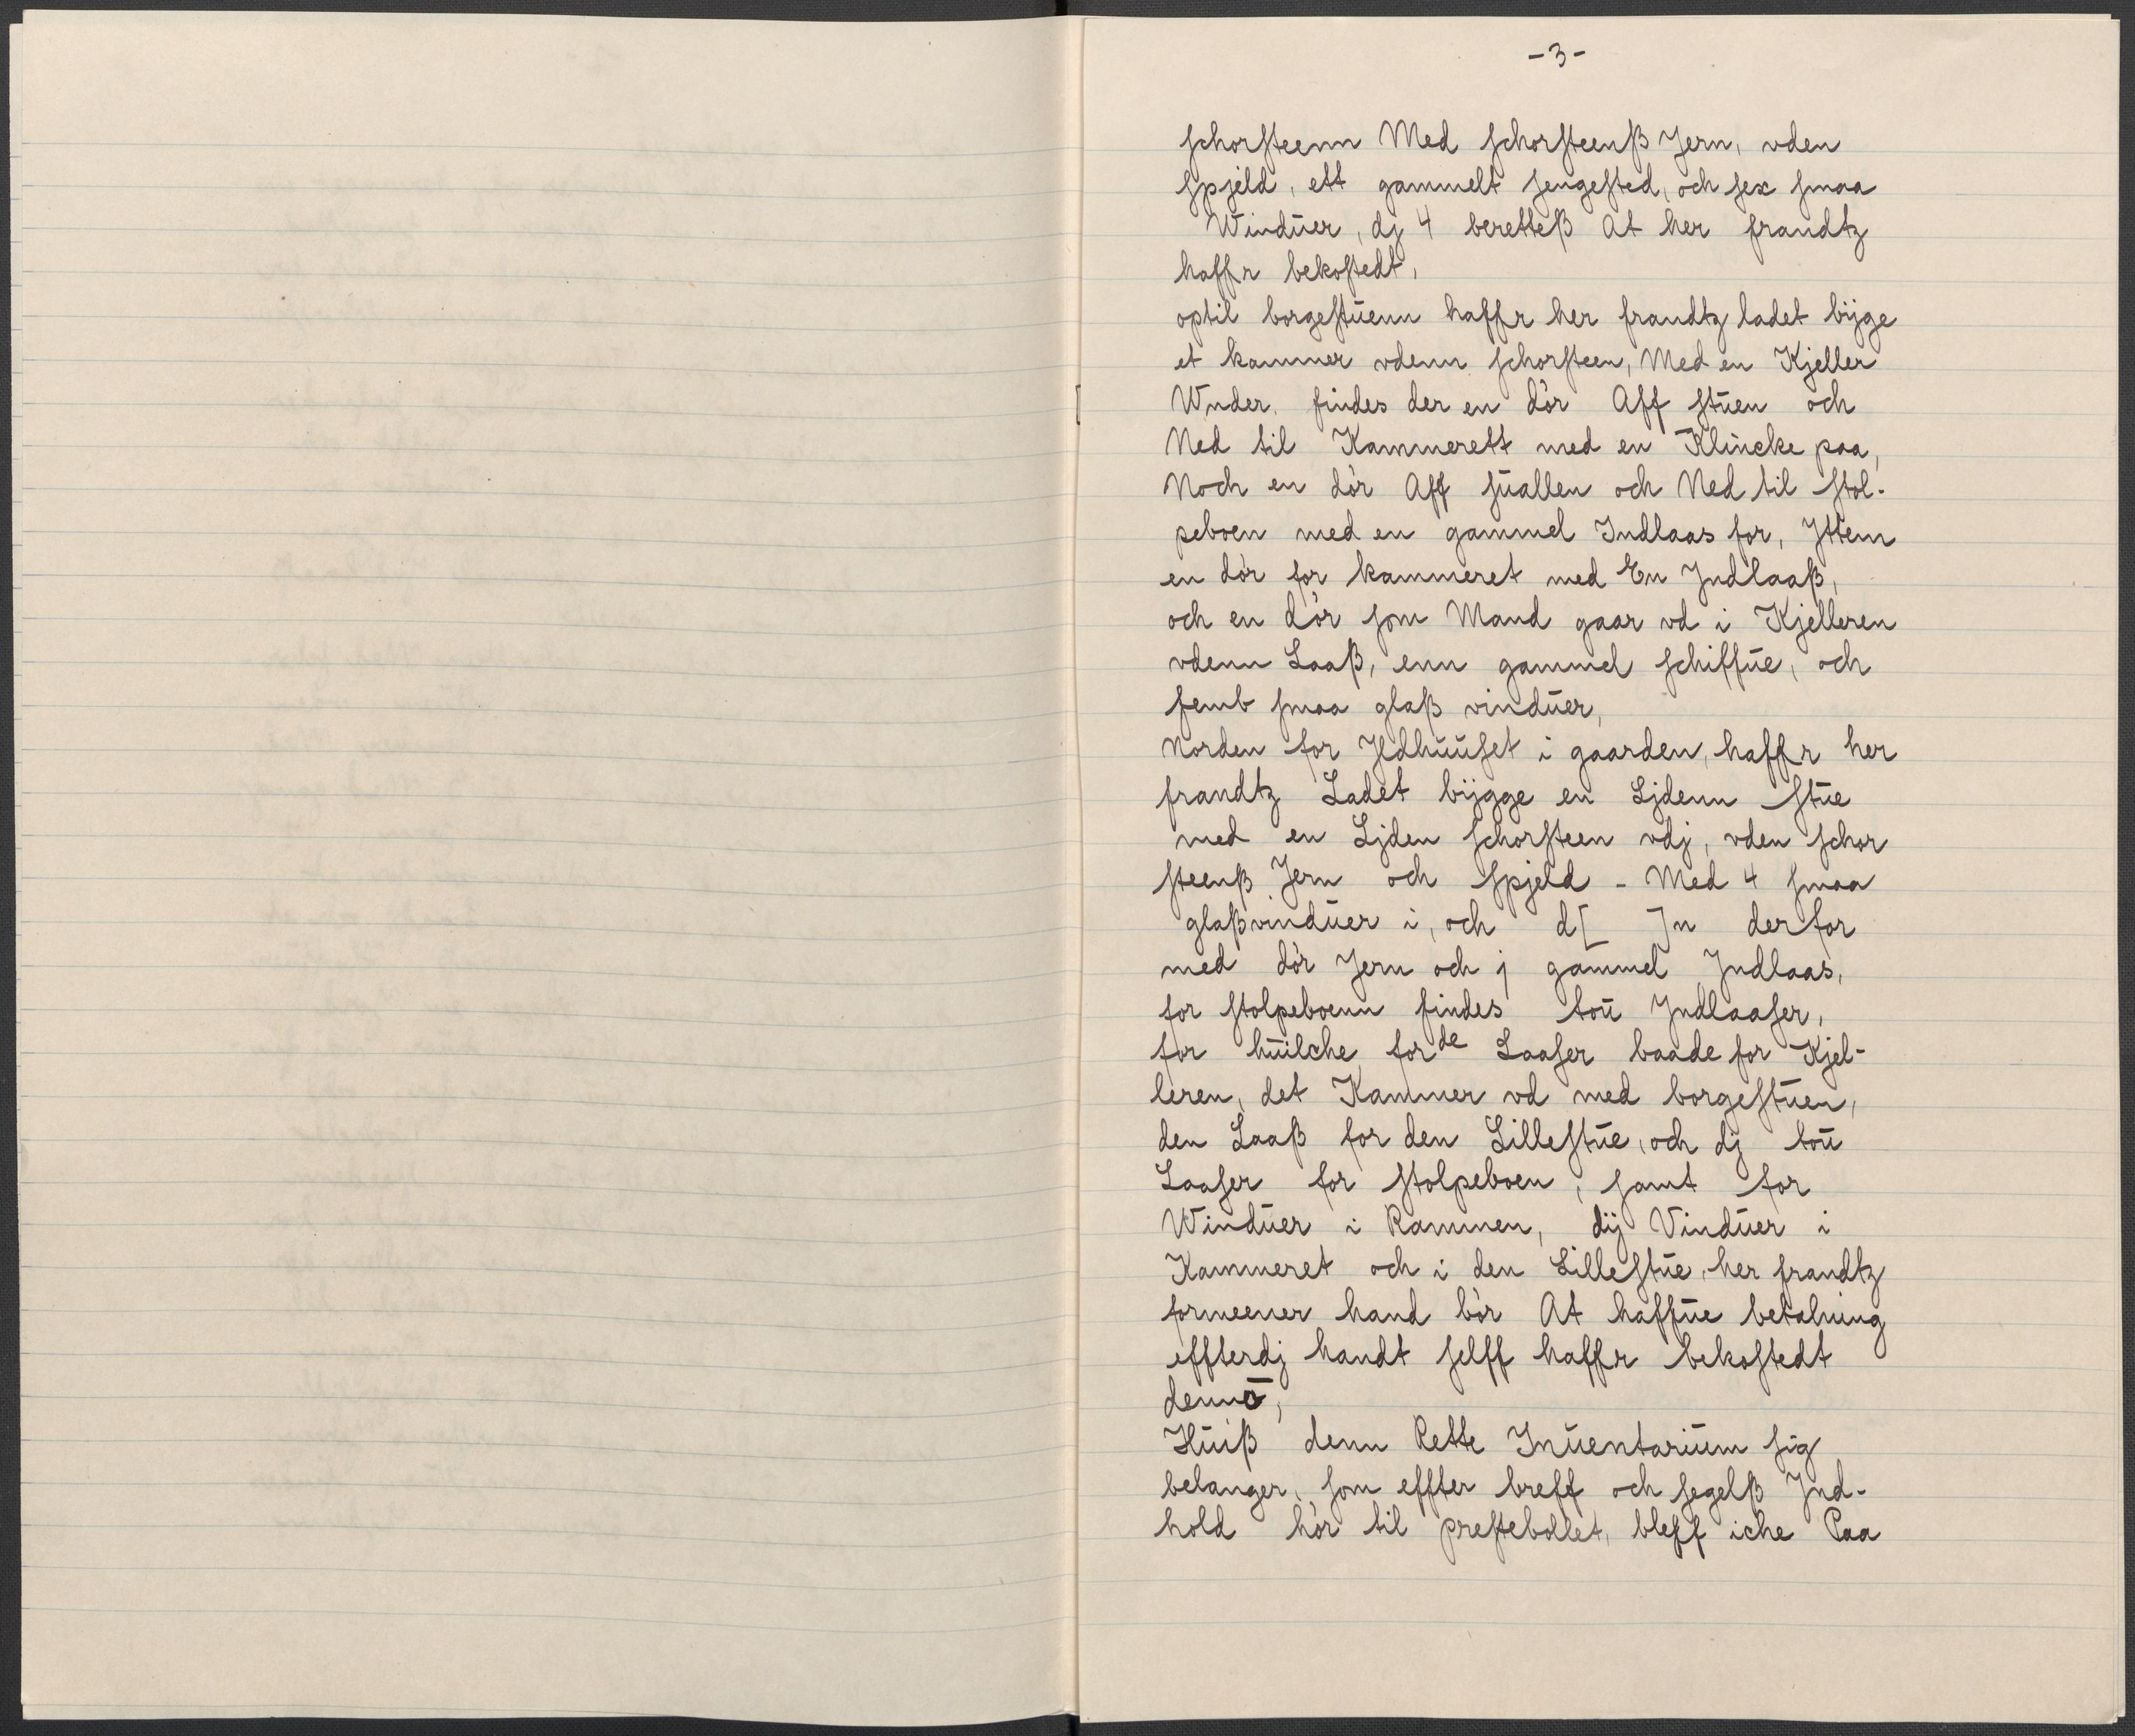 -3-
schorsteenn Med schorsteenß Jern, vden
spjeld, ett gammelt sengested, och sex smaa
Winduer, dj 4 beretteß At her frandtz
haffr bekostedt,
optil borgestuenn haffr her frandtz ladet bijge
et kammer vdenn schorsteen, Med en Kjeller
Wnder. findes der en dör Aff stuen och
Ned til Kammerett med en Klincke paa,
Noch en dör Aff suallen och Ned til stol-
peboen med en gammel Indlaas for, Jttem
en dör for kammeret med En Jndlaaß,
och en dör som Mand gaar vd i Kjelleren
vdenn Laaß, enn gammel schiffue, och
femb smaa glaß vinduer,
Norden for Jldhuuset i gaarden, haffr her
frandtz Ladet bijgge en Ljdenn stue
med en Ljden schorsteen vdj, vden schor
steenß Jern och spjeld - Med 4 smaa
glaßvinduer i, och d[ ]n derfor
med dör Jern och j gammel Jndlaas,
for stolpeboenn findes tou Jndlaaser,
for huilche forde Laaser baade for Kjel-
leren, det Kammer vd med borgestuen,
den Laaß for den Lillestue, och dj tou
Laaser for stolpeboen, samt for
Winduer i Rammen, dij Vinduer i
Kammeret och i den Lillestue, her frandtz
formeener hand bör At haffue betalning
effterdj handt selff haffr bekostedt
dennō,
Huiß denn Rette Inuentarium sig
belanger, som effter breff och segelß Jnd-
hold hör til prestebollet, bleff iche Paa